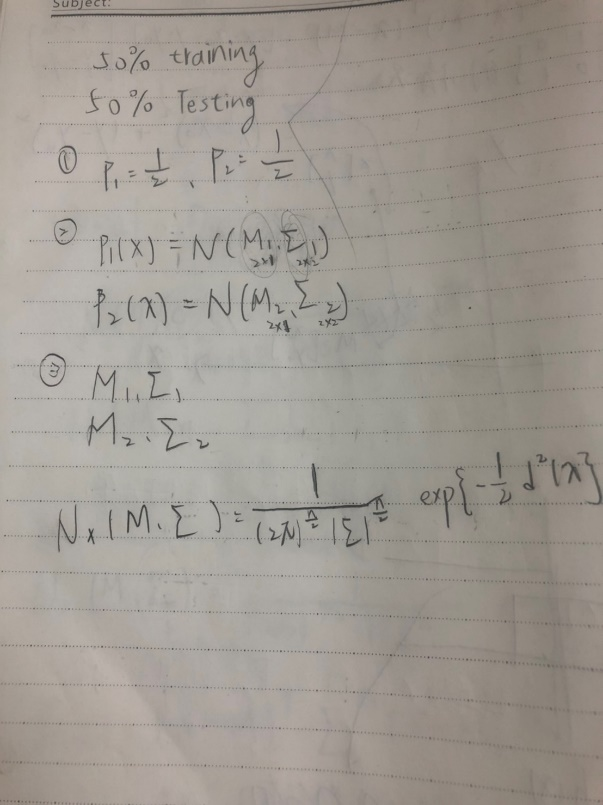 Subject:
50% training
50% Testing
① P₁ = 1/2 、 P₂ = 1/2
② P₁(X) = N(M₁、Σ₁)
2x1 2x2
P₂(X) = N(M₂、Σ₂)
2x1 2x2
③ M₁、Σ₁
M₂、Σ₂
Nₓ(M、Σ) = 1/((2π)^(n/2) |Σ|^(n/2)) exp{-1/2 d²(x)}